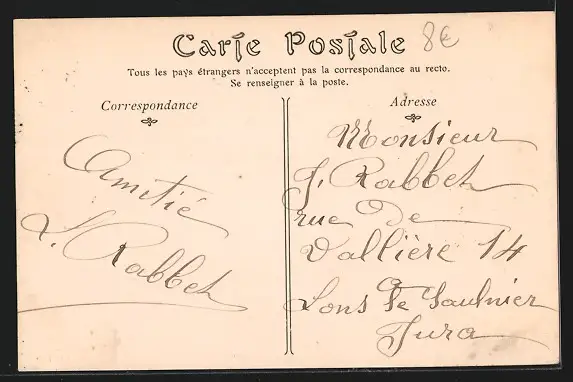 Carte Postale
8€
Tous les pays étrangers n'acceptent pas la correspondance au recto.
Se renseigner à la poste.
Correspondance
Amitié
L. Rabbet
Adresse
Monsieur
J. Rabbet
rue De
Vallière 14
Lons Le Saulnier
Jura